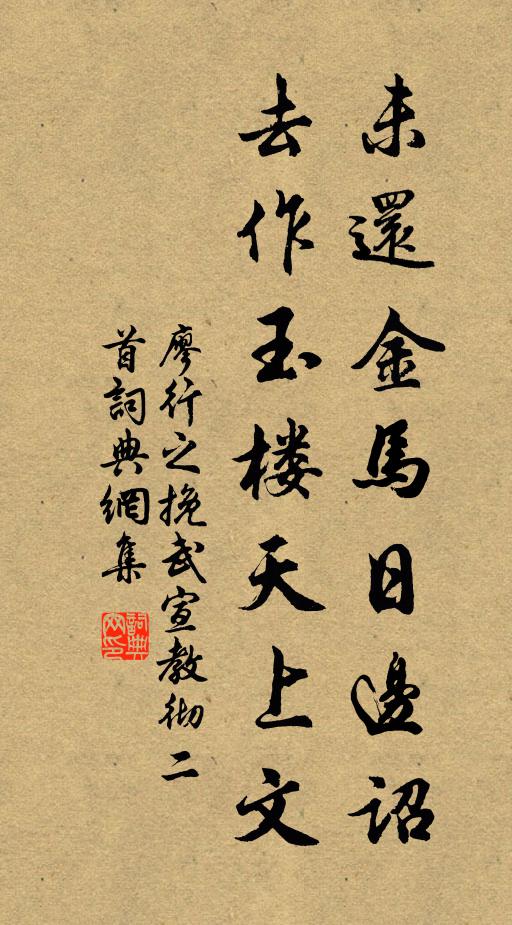 未還金馬日邊詔
去作玉楼天上文
廖行之挽武宣教彻二
首詞典網集
詞典
网印